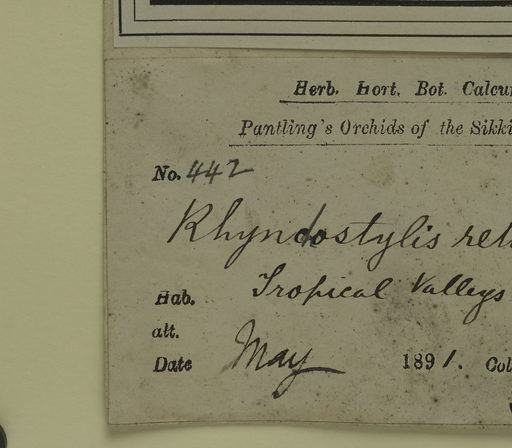 Herb. Hort. Bot. Calcu
Pantling's Orchids of the Sikki
No. 442
Rhyncostylis ret
Hab. Tropical Valleys
alt.
Date May 1891. Col